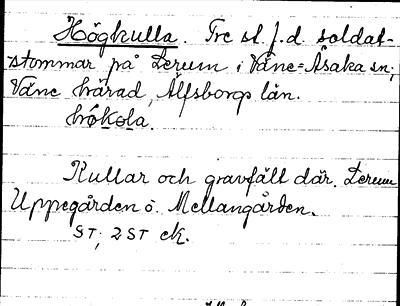 Högkulla. Tre st. f.d. soldat-
stommar på Lerum i Väne-Åsaka sn;
Väne härad, Älfsborgs län.
hökola.
Kullar och gravfält där. Lerum
Uppegården o. Mellangården.
ST; 2 ST ek.